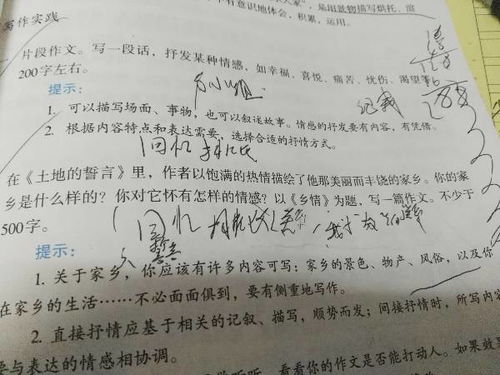 有意识地体会，积累，运用。
写作实践
片段作文。写一段话，抒发某种情感，如幸福、喜悦、痛苦、忧伤、渴望等
200字左右。
提示：
1. 可以描写场面、事物，也可以叙述故事。情感的抒发要有内容、有凭借。
2. 根据内容特点和表达需要，选择合适的抒情方式。
回忆
在《土地的誓言》里，作者以饱满的热情描绘了他那美丽而丰饶的家乡。你的家
乡是什么样的？你对它怀有怎样的情感？以《乡情》为题，写一篇作文。不少于
500字。
回忆
提示：
1. 关于家乡，你应该有许多内容可写：家乡的景色、物产、风俗，以及你
在家乡的生活……不必面面俱到，要有侧重地写作。
2. 直接抒情应基于相关的记叙、描写，顺势而发；间接抒情时，所写内容
要与表达的情感相协调。
看看你的作文是否能打动人。如果效